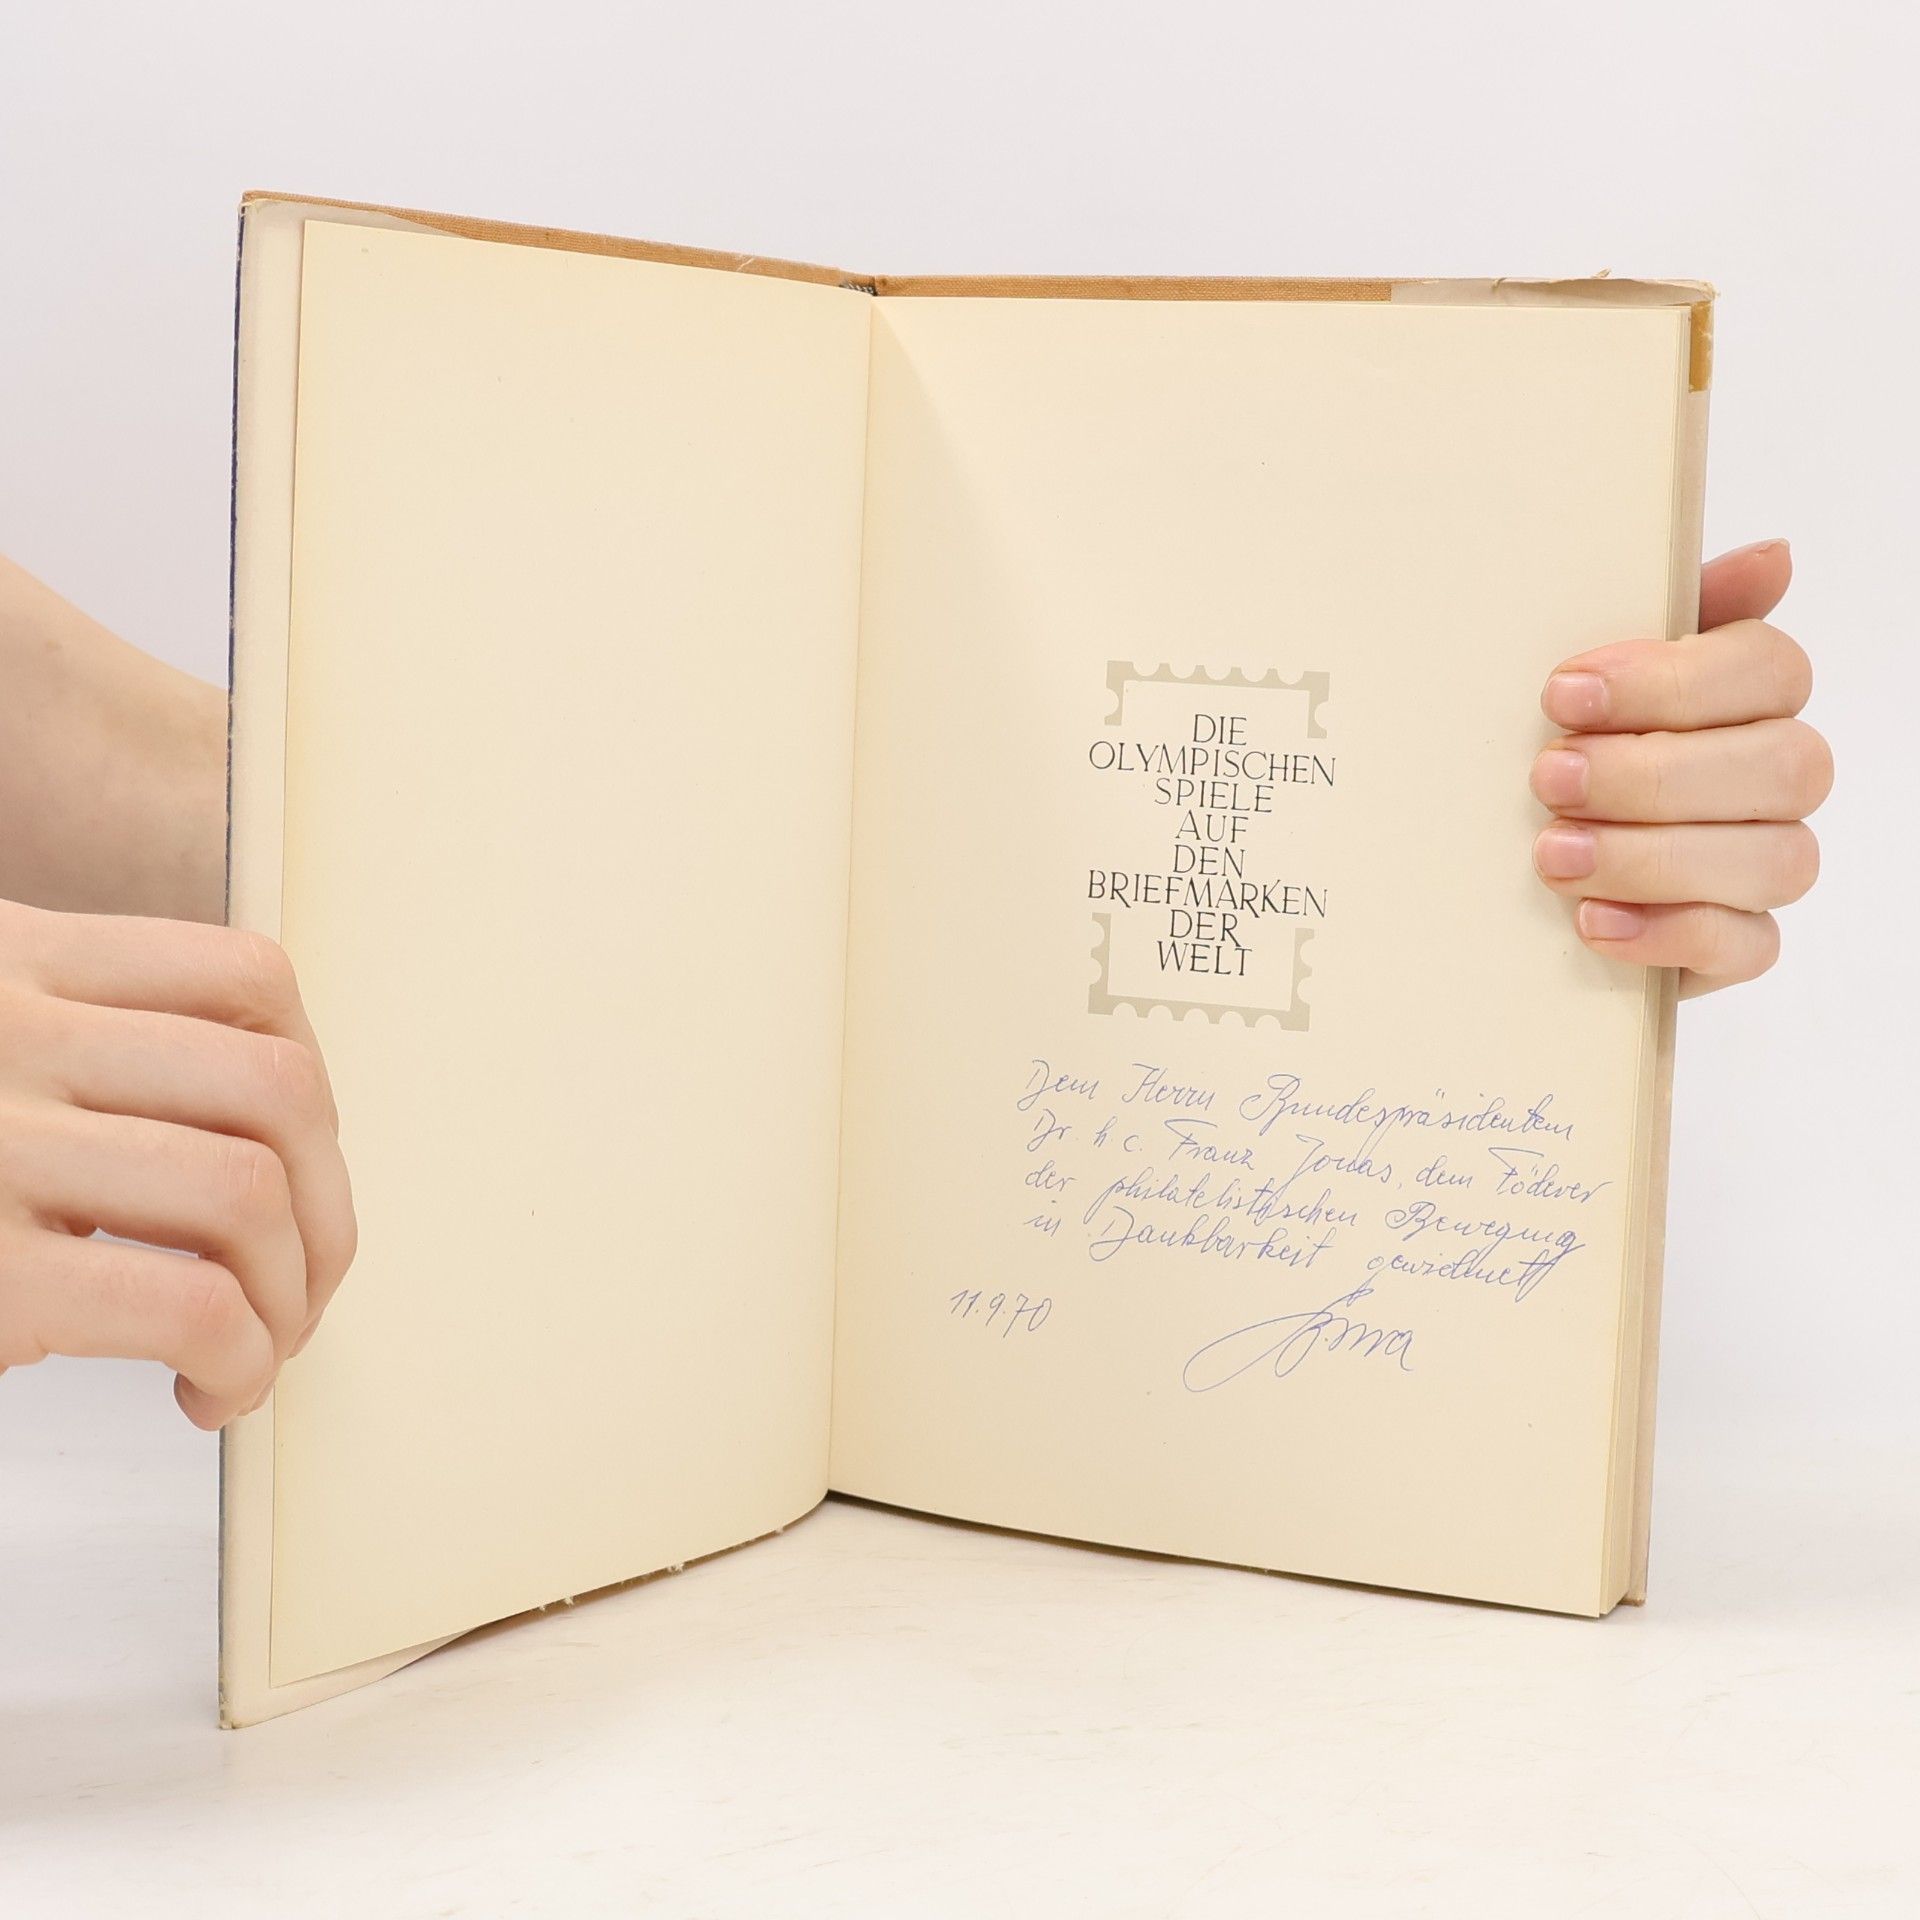 DIE
OLYMPISCHEN
SPIELE
AUF
DEN
BRIEFMARKEN
DER
WELT
Dem Herrn Bundespräsidenten
Dr. h. c. Franz Jonas, dem Föderer
der philatelistischen Bewegung
in Dankbarkeit gewidmet
11.9.70